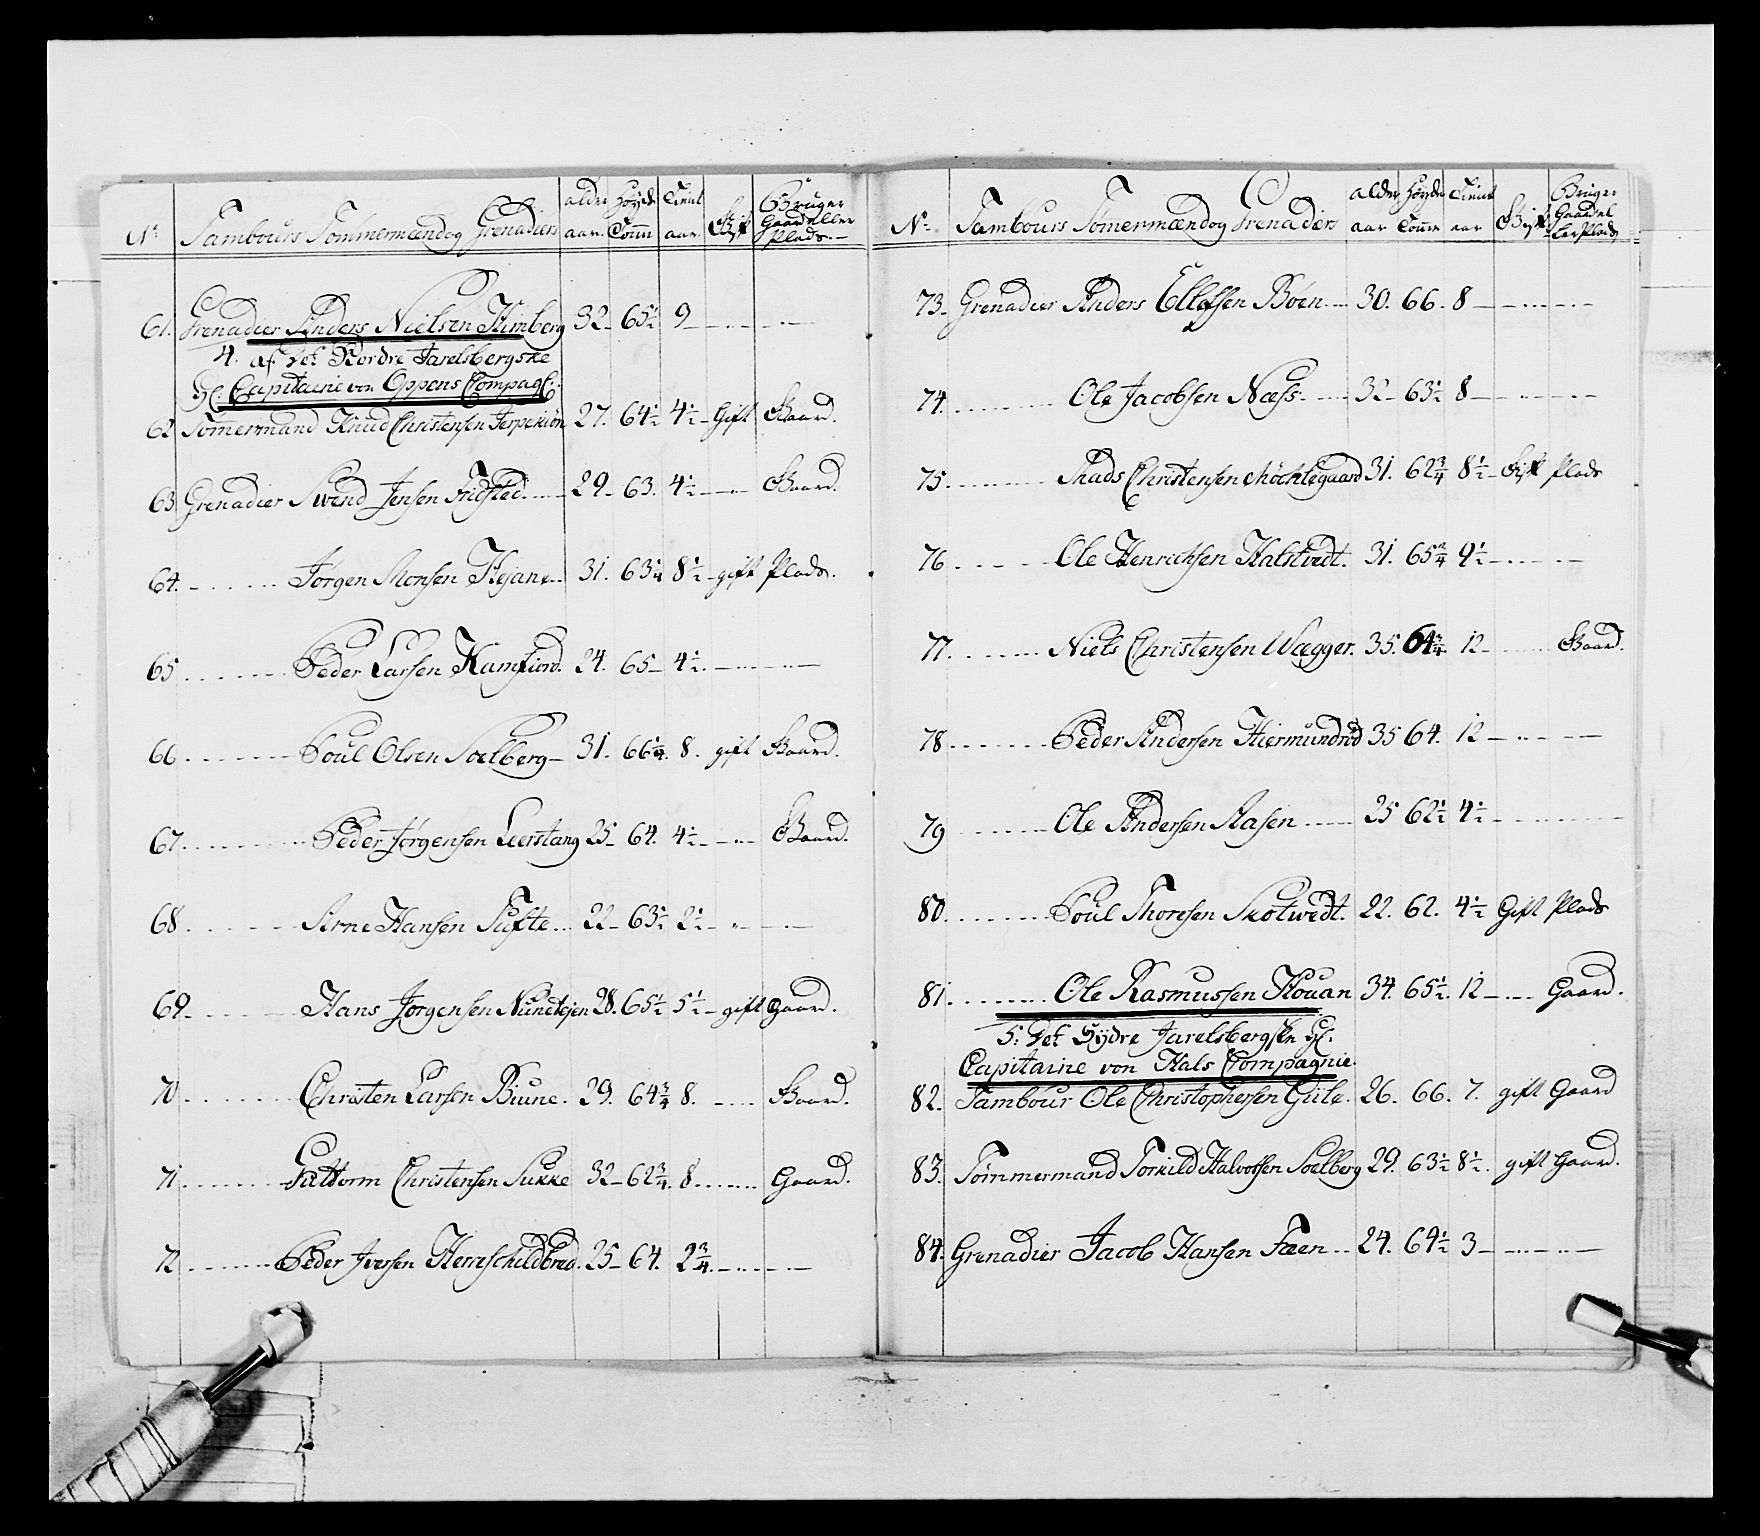 No. Tambours Tømmermænd og Grenadiers alder aar. Høyde Tomm Tient aar. Gift Bruger Gaard eller Plads.
61. Grenadier Anders Nielsen Himberg 32 65½ 9
4. af det Nordre Jarelsbergske
Capitaine von Oppens Compag:
62 Tømmermand Knud Christensen 27. 64½ 4½ Gift Gaard.
63 Grenadier Swend Jensen 29 63. 4½ Gaard.
64. Jørgen Monsen 31. 63¼ 8½ gift Plads.
65 Peder Larsen Kamfiord. 24. 65 4½.
66 Poul Olsen Soelberg 31. 66¼. 8. gift Gaard.
67. Peder Jørgensen Leerstang 25 64. 4½ Gaard.
68. Arne Hansen Tufte 22 63½ 2½
69. Hans Jørgensen 28. 65½ 5½ gift Gaard.
70 Christen Larsen Biune. 29. 64¾ 8. Gaard.
71 Guttorm Christensen Sukke 32 62¾. 8 Gaard.
72 Peder Iversen Herreschildbred. 25 64. 2¾.
No. Tambours Tømermænd og Grenadiers alder aar Høyde Tomm Tient aar Gift Bruger Gaard eller Plads
73. Grenadier Anders Ellefsen Bøen 30. 66. 8
74. Ole Jacobsen Næss 32 63½ 8
75. Mads Christensen 31. 62¾ 8½ Gift Plads
76. Ole Henrichsen Halstvedt. 31. 65¾ 9½
77. Niels Christensen Wægger. 35. 64¾ 12 Gaard.
78. Peder Andersen Hiermundrød 35 64. 12
79 Ole Andersen Aasen 25 62½ 4½
80. Poul Thoresen Skotvedt. 22. 62. 4½ Gift Plads
81. Ole Rasmussen Houan 34. 65½. 12 Gaard.
5. Det Sydre Jarelsbergske
Capitaine von Hals Compagnie.
82. Tambour Ole Christophersen Gule. 26. 66. 7. gift Gaard
83. Tømmermand Torkild Halvorsen Soelberg 29. 63½ 8½. gift Gaard.
84. Grenadier Jacob Hansen Foen 24. 64½ 3